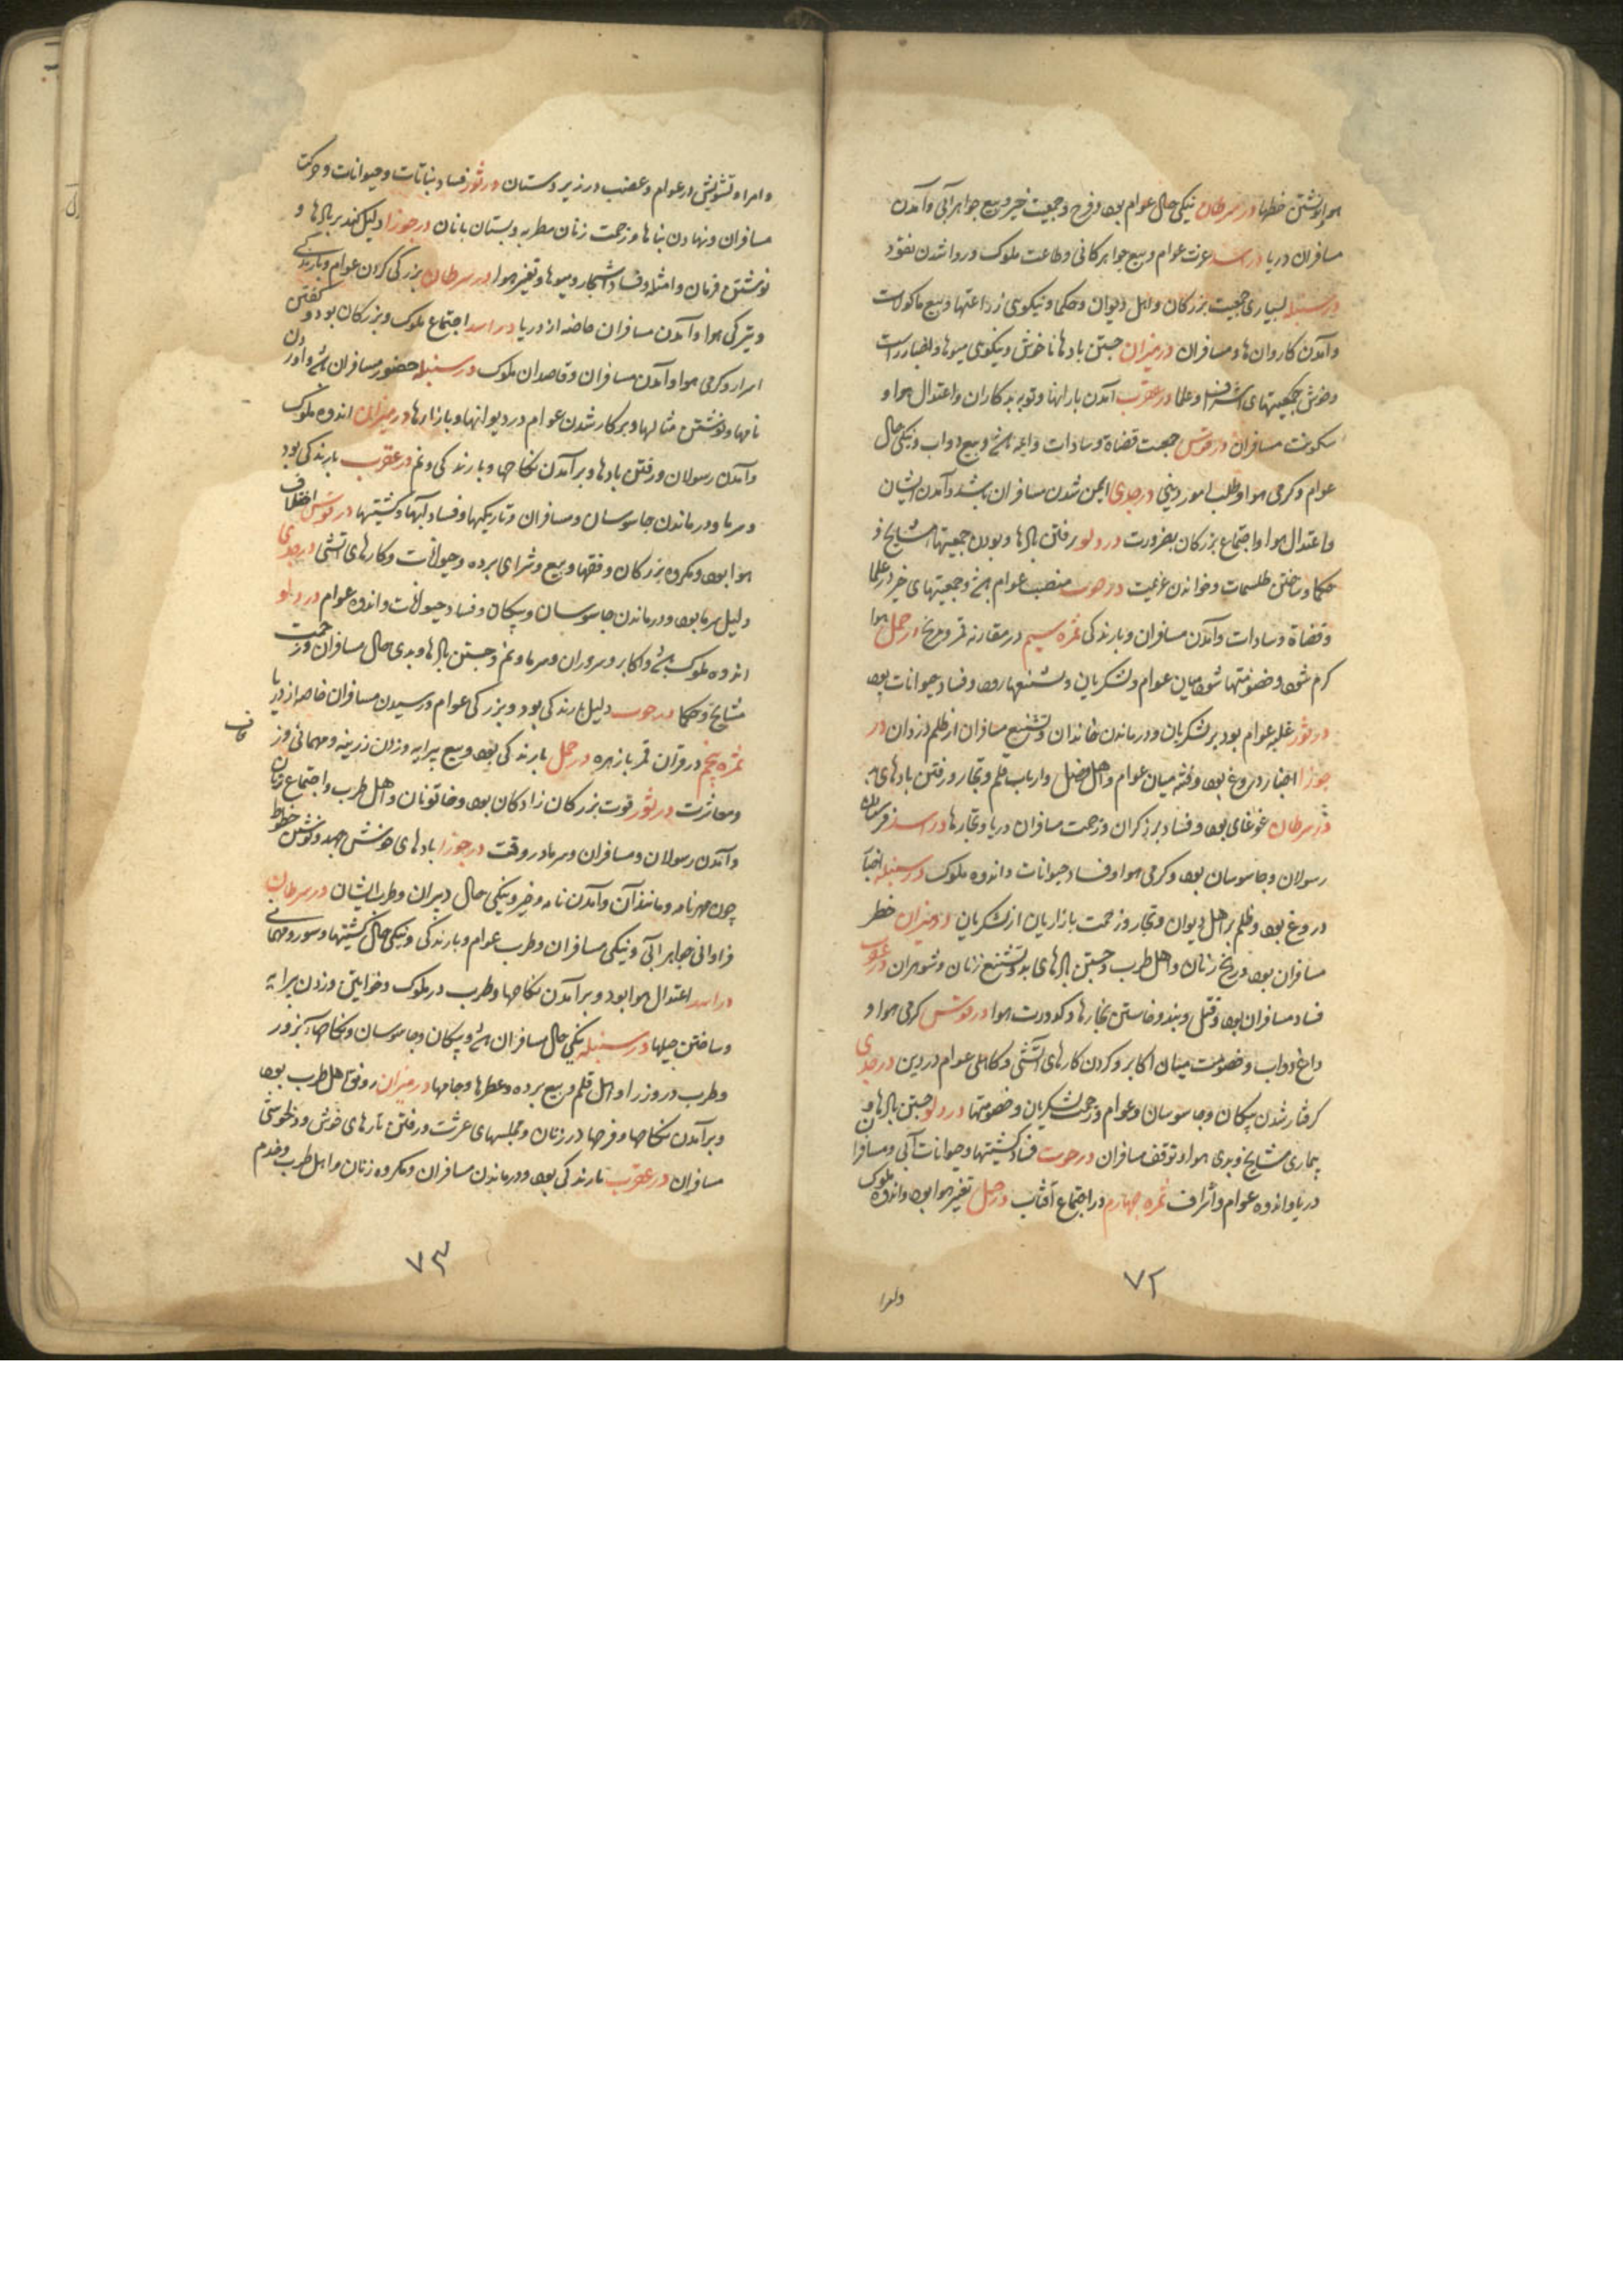 هوا و نوشتن خطها در سرطان نیکی حال عوام بود و فرح و جمعیت خیر و بیع جواهر آبی و آمدن
مسافران دریا در اسد عزت عوام و بیع جواهر کانی و طاعت ملوک و روا شدن نقود
در سنبله بسیاری جمعیت بزرکان و اهل دیوان و حکما و نیکویی زراعتها و بیع ماکولات
و آمدن کاروان ها و مسافران در میزان جستن بادها ناخوش و نیکویی میوها و اخبار راست
و خوش جمعیتهای اشراف و علما در عقرب آمدن بارانها و توبه بدکاران و اعتدال هوا و
سکونت مسافران در قوس جمعیت قضاة و سادات و ائمه و بیع دواب و نیکی حال
عوام و کرمی هوا و طلب امور دینی در جدی ایمن شدن مسافران باشد و آمدن ایشان
و اعتدال هوا و اجتماع بزرکان بضرورت در دلو رفتن بادها و بودن جمعیتها مشایخ و
حکما و ساختن طلسمات و خواندن عزیمت در حوت منصب عوام و جمعیتهای خیر در علما
و قضاة و سادات و آمدن مسافران و بارندکی ثمره سیم در مقارنه قمر و مریخ در حمل هوا
کرم شود و خصومتها شود میان عوام و لشکریان و تشنیعها رود و فساد حیوانات بود
در ثور غلبه عوام بود بر لشکریان و درماندن خاندان و تشنیع مسافران از ظلم دزدان در
جوزا اخبار دروغ بود و فتنه میان عوام و اهل فضل و ارباب قلم و تجار و رفتن بادهای
در سرطان غوغای بود و فساد برزکران و زحمت مسافران دریا و تجارها در اسد فرستادن
رسولان و جاسوسان بود و کرمی هوا و فساد حیوانات و اندوه ملوک در سنبله اخبار
دروغ بود و ظلم بر اهل دیوان و تجار و زحمت بازاریان از لشکریان در میزان خطر
مسافران بود و رنج زنان و اهل طرب و جستن بادهای بد و تشنیع زنان و شوهران در عقرب
فساد مسافران بود و قتل و بند و خاستن بخارها و کدورت هوا در قوس کرمی هوا و
داغ دواب و خصومت میان اکابر و کردن کارهای آتشی و کاهلی عوام در دین در جدی
کرفتار شدن پیکان و جاسوسان و عوام و زحمت لشکریان و خصومتها در دلو جستن بادها و
بیماری مشایخ و بدی هوا و توقف مسافران در حوت فساد کشتیها و حیوانات آبی و مسافران
دریا و اندوه عوام و اشراف ثمره چهارم در اجتماع آفتاب در حمل تغیر هوا بود و اندوه ملوک
۷۲
و امرا
و امرا و تشویش در عوام و غضب در زیردستان در ثور فساد نباتات و حیوانات و حرکت
مسافران و نهادن بناها و زحمت زنان مطربه و بستان بانان در جوزا دلیل کند بر بادها و
نوشتن فرمان و امثله و فساد اشجار و میوها و تغیر هوا در سرطان بزرکی کردن عوام و بارندکی
و تیرکی هوا و آمدن مسافران خاصه از دریا در اسد اجتماع ملوک و بزرکان بود و کفتن
اسرار و کرمی هوا و آمدن مسافران و قاصدان ملوک در سنبله حضور مسافران و آوردن
نامها و نوشتن مثالها و بر کار شدن عوام در دیوانها و بازارها در میزان اندوه ملوک
و آمدن رسولان و رفتن بادها و برآمدن نکاحها و بارندکی و نم در عقرب بارندکی بود
و سرما و درماندن جاسوسان و مسافران و تاریکیها و فساد آبها و کشتیها در قوس اختلاف
هوا بود و مکروه بزرکان و فقها و بیع و شرای برده و حیوانات و کارهای آتشی در جدی
دلیل سرما بود و درماندن جاسوسان و پیکان و فساد حیوانات و اندوه عوام در دلو
اندوه ملوک و اکابر و سروران و سرما و نم و جستن بادها و بدی حال مسافران و زحمت
مشایخ و حکما در حوت دلیل بارندکی بود و بزرکی عوام و رسیدن مسافران خاصه از دریا
ثمره پنجم در قران قمر با زهره در حمل بارندکی بود و بیع پیرایه و زدن زرینه و مهمانی
و معاشرت در ثور قوت بزرکان زادکان بود و خاتونان و اهل طرب و اجتماع زنان
و آمدن رسولان و مسافران و سرما در وقت در جوزا بادهای خوش جهد و نوشتن خطوط
چون مهرنامه و مانند آن و آمدن نامه و خبر و نیکی حال دبیران و طرب ایشان در سرطان
فراوانی جواهر آبی و نیکی مسافران و طرب عوام و بارندکی و نیکی حال کشتیها و سور و مهمانی
در اسد اعتدال هوا بود و برآمدن نکاحها و طرب در ملوک و خواتین و زدن پیرایه
و ساختن حیلها در سنبله نیکی حال مسافران و پیکان و جاسوسان و نکاحها
و طرب در وزرا و اهل قلم و بیع برده و عطرها و جامها در میزان رونق اهل طرب بود
و برآمدن نکاحها و فرحها در زنان و مجلسهای عشرت و رفتن بادهای خوش و دلخوشی
مسافران در عقرب بارندکی بود و درماندن مسافران و مکروه زنان مر اهل طرب و خدم
۷۳